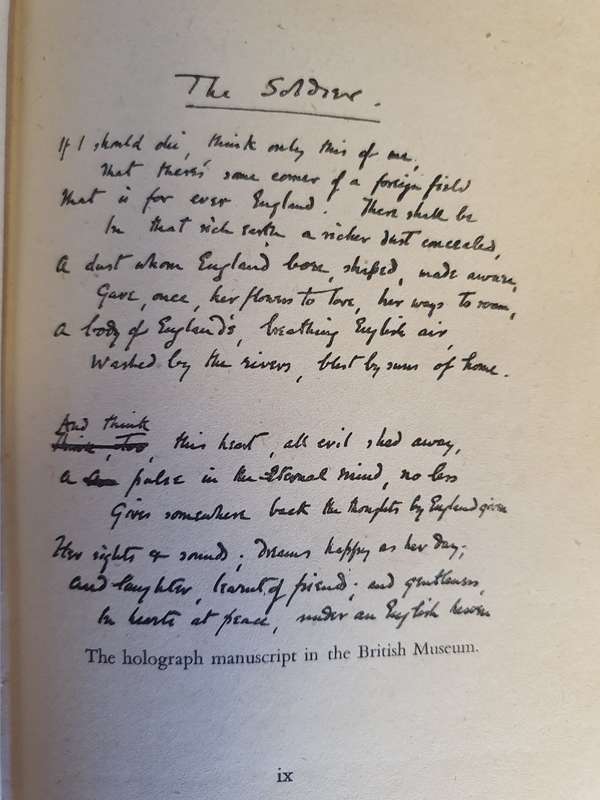 The Soldier.
If I should die, think only this of me,
That there's some corner of a foreign field
That is for ever England. There shall be
In that rich earth a richer dust concealed,
A dust whom England bore, shaped, made aware,
Gave, once, her flowers to love, her ways to roam,
A body of England's, breathing English air,
Washed by the rivers, blest by suns of home.
And think
Think, too, this heart, all evil shed away,
A pulse in the Eternal mind, no less
Gives somewhere back the thoughts by England given
Her sights & sounds; dreams happy as her day;
And laughter, learnt of friends; and gentleness,
In hearts at peace, under an English heaven
The holograph manuscript in the British Museum.
ix